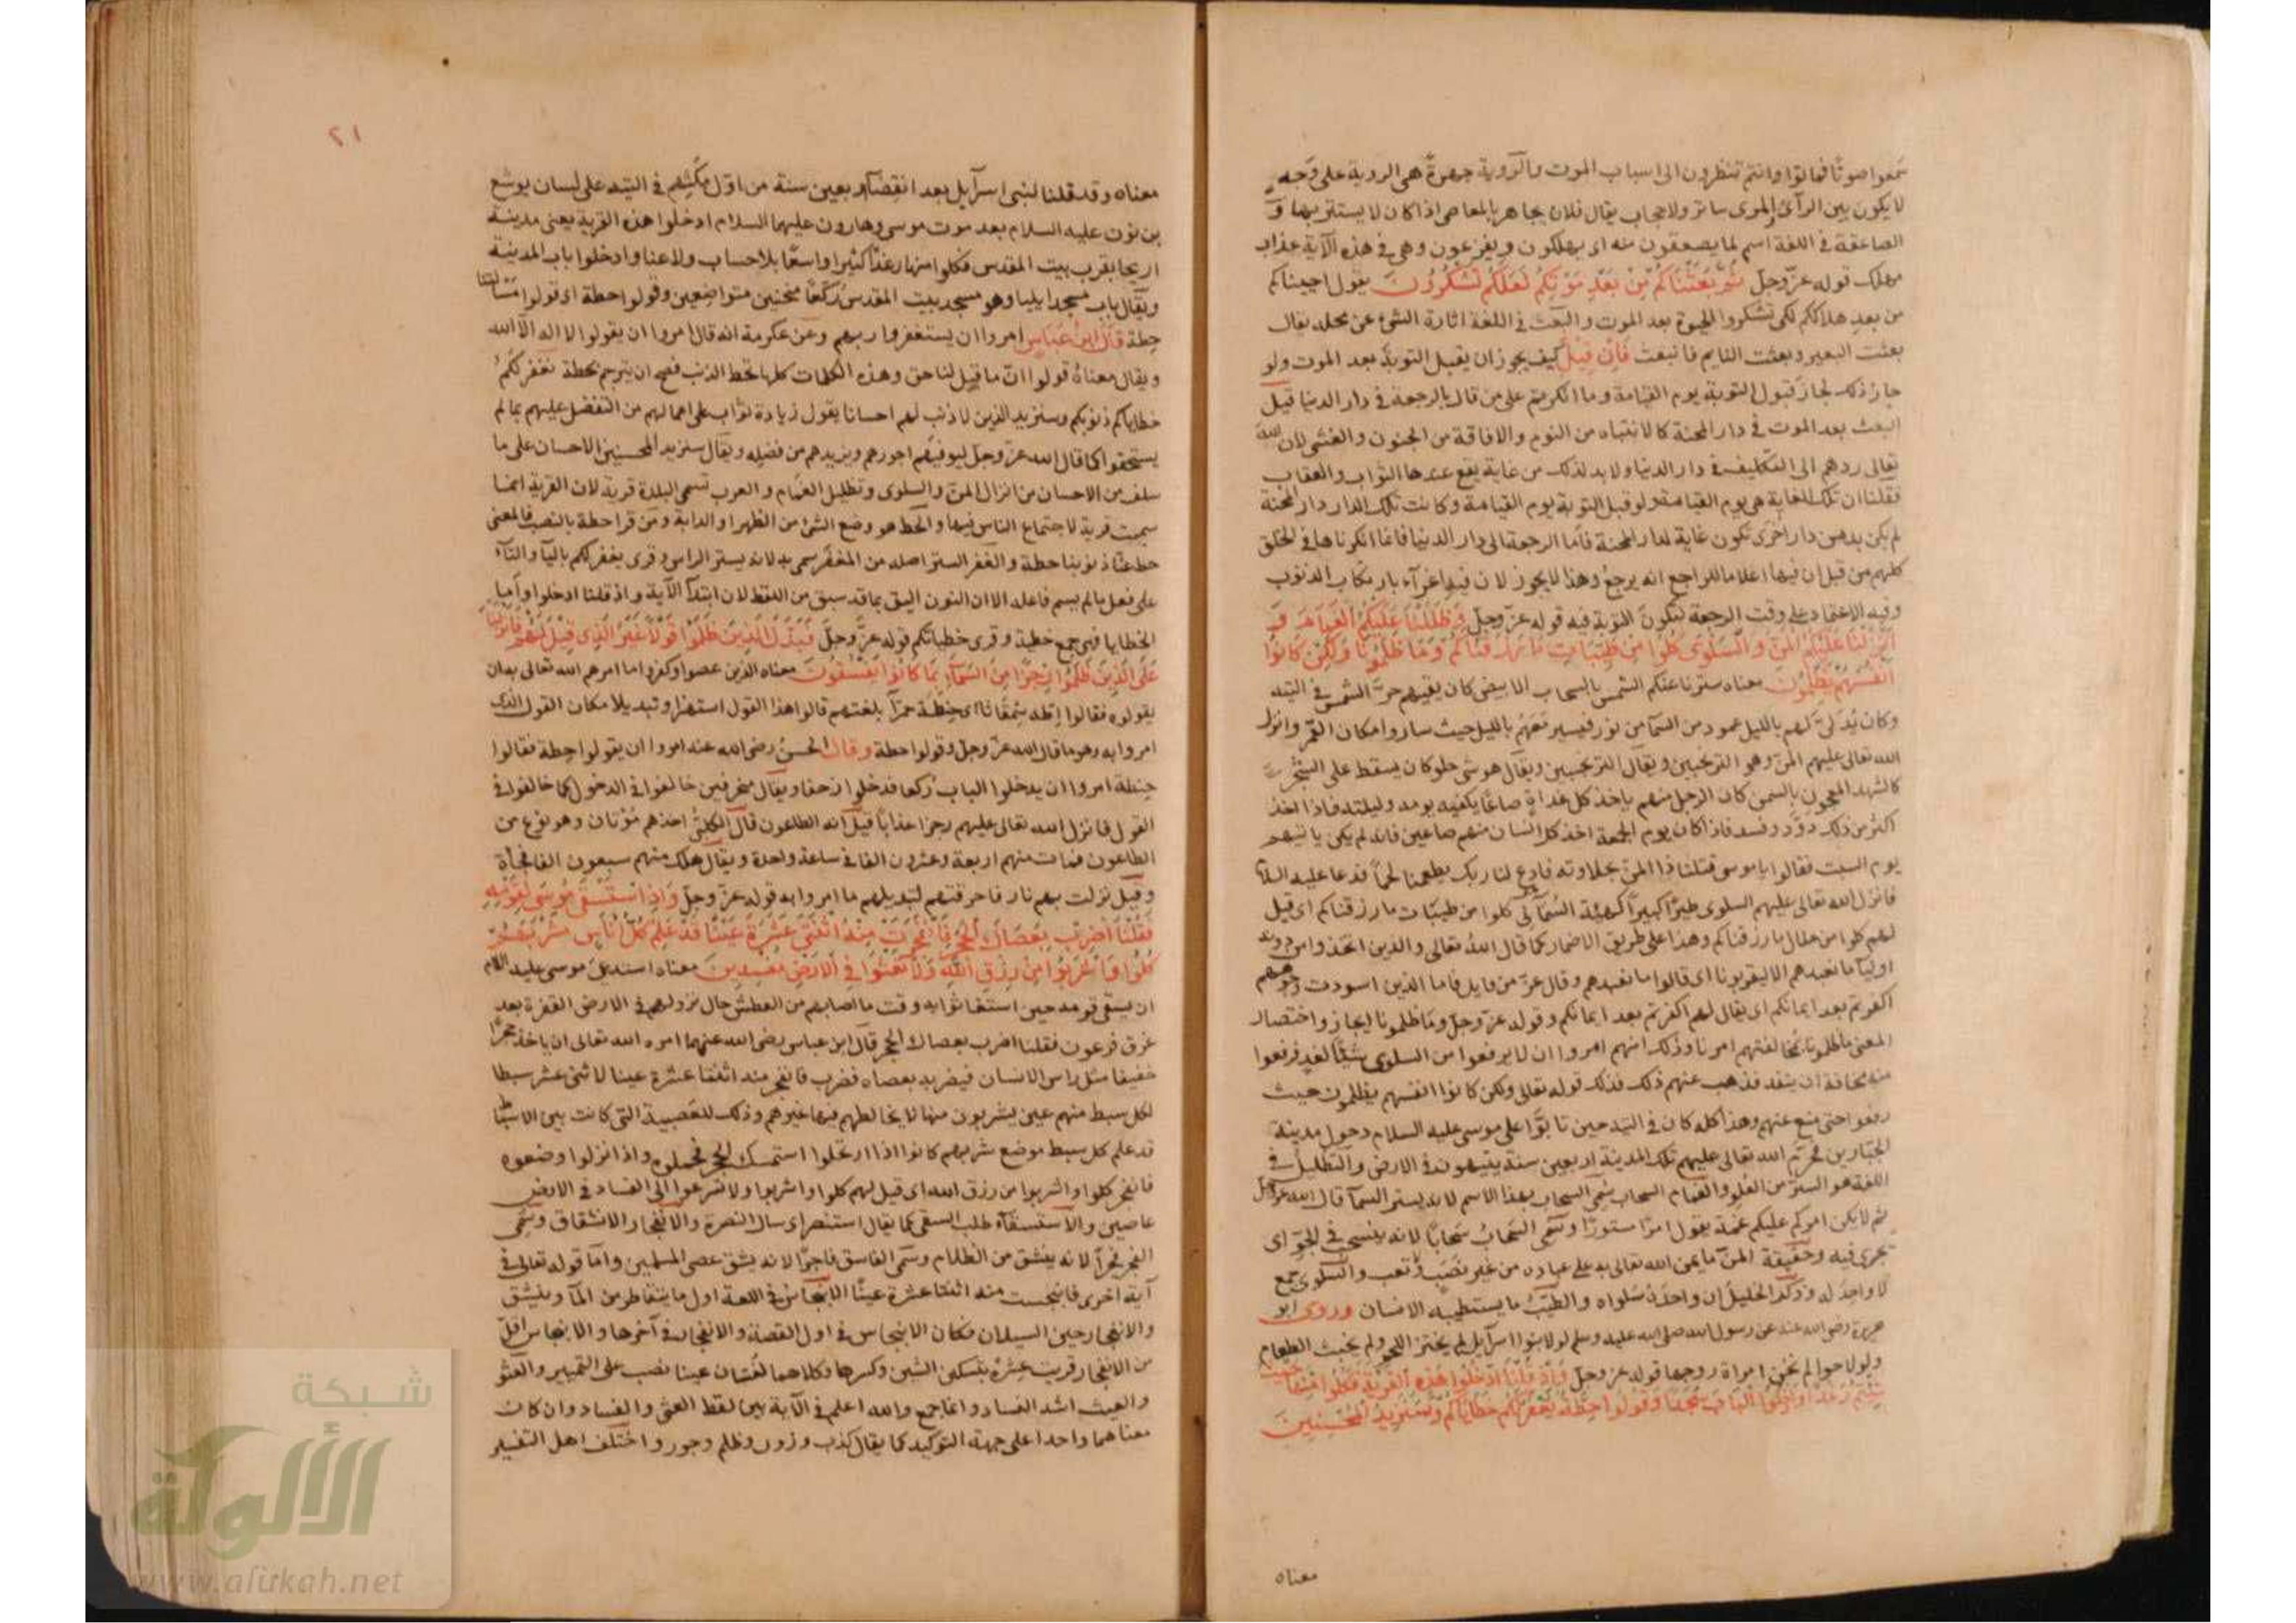 سمعوا صوتًا فماتوا وانتم تنظرون الى اسباب الموت والرؤية جهرةً هى الروية على وجه
لا يكون بين الرآئى والمرى ساتر ولا حجاب يقال فلان يجاهر بالمعاصى اذا كان لا يستتر بها و
الصاعقة فى اللغة اسم لما يصعقون منه اى يهلكون ويفزعون وهى فى هذه الآية عذاب
مهلك قوله عز وجل ثم بعثناكم من بعد موتكم لعلكم تشكرون يقول احييناكم
من بعد هلاككم لكى تشكروا الحيوة بعد الموت والبعث فى اللغة اثارة الشئ عن محله يقال
بعثت البعير وبعثت النايم فانبعث فان قيل كيف يجوز ان يقبل التوبة بعد الموت ولو
جاز ذلك لجاز قبول التوبة يوم القيامة وما انكرتم على من قال بالرجعة فى دار الدنيا قيل
البعث بعد الموت فى دار المحنة كالانتباه من النوم والافاقة من الجنون والغشى لان الله
تعالى ردهم الى التكليف فى دار الدنيا ولا بد لذلك من غاية يقع عندها الثواب والعقاب
فقلنا ان تلك الغاية هى يوم القيامة ولو قبل التوبة يوم القيامة وكانت تلك الدار دار المحنة
لم يكن بد من دار اخرى تكون غاية لدار المحنة فاما الرجعة الى دار الدنيا فانما انكرناها فى الخلق
كلهم من قبل ان فيها اعلاما للراجع انه يرجع وهذا لا يجوز لان فيه اغرآء بارتكاب الذنوب
وفيه الاعتماد على وقت الرجعة لتكون التوبة فيه قوله عز وجل وظللنا عليكم الغمام و
انزلنا عليكم المن والسلوى كلوا من طيبات ما رزقناكم وما ظلمونا ولكن كانوا
انفسهم يظلمون معناه سترنا عنكم الشمس بالسحاب الابيض كان يقيهم حر الشمس فى التيه
وكان يدلى لهم بالليل عمود من السمآ من نور فيسير معهم بالليل حيث ساروا مكان القمر وانزل
الله تعالى عليهم المن وهو الترنجبين ويقال الترنجبين ويقال هو شئ حلو كان يسقط على الشجر
كالشهد المعجون بالسمن كان الرجل منهم ياخذ كل غداة صاعا يكفيه يومه وليلته فاذا اخذ
اكثر من ذلك دوّد وفسد فاذا كان يوم الجمعة اخذ كل انسان منهم صاعين فانه لم يكن ياتيهم
يوم السبت فقالوا يا موسى قتلنا ذا المن بحلاوته فادع لنا ربك يطعمنا لحماً فدعا عليه السلام
فانزل الله تعالى عليهم السلوى طيرًا كبيرًا كهيئة السمآنى كلوا من طيبات ما رزقناكم اى قيل
لهم كلوا من حلال ما رزقناكم وهذا على طريق الاضمار كما قال الله تعالى والذين اتخذوا من دونه
اوليآ ما نعبدهم الا ليقربونا اى قالوا ما نعبدهم وقال عز من قايل فاما الذين اسودت وجوههم
اكفرتم بعد ايمانكم اى يقال لهم اكفرتم بعد ايمانكم وقوله عز وجل وما ظلمونا ايجاز واختصار
المعنى ما ظلمونا بمخالفتهم امرنا وذلك انهم امروا ان لا يرفعوا من السلوى شيئا لغد فرفعوا
منه مخافة ان ينفد فذهب عنهم ذلك فذلك قوله تعالى ولكن كانوا انفسهم يظلمون حيث
رفعوا حتى منع عنهم وهذا كله كان فى التيه حين تابوا على موسى عليه السلام دخول مدينة
الجبارين فحرّم الله تعالى عليهم تلك المدينة اربعين سنة يتيهون فى الارض والتظليل فى
اللغة هو الستر من العلو والغمام السحاب سمى السحاب بهذا الاسم لانه يستر السمآ قال الله عز وجل
ثم لا يكن امركم عليكم غمة يقول امرًا مستورًا وسمى السحاب سحابًا لانه ينسحب فى الجو اى
يجرى فيه وحقيقة المن ما يمن الله تعالى به على عباده من غير نصب وتعب والسلوى جمع
لا واحد له وذكر الخليل ان واحدته سلواه والطيب ما يستطيبه الانسان وروى ابو
هريرة رضى الله عنه عن رسول الله صلى الله عليه وسلم لولا بنوا اسرآيل لم يخنز اللحم ولم يخبث الطعام
ولولا حوا لم تخن امراة زوجها قوله عز وجل واذ قلنا ادخلوا هذه القرية فكلوا منها حيث
شئتم رغدا وادخلوا الباب سجدا وقولوا حطة نغفر لكم خطاياكم وسنزيد المحسنين
معناه
٢١
معناه وقد قلنا لبنى اسرآيل بعد انقضآء اربعين سنة من اول مكثهم فى التيه على لسان يوشع
بن نون عليه السلام بعد موت موسى وهارون عليهما السلام ادخلوا هذه القرية يعنى مدينة
اريحا بقرب بيت المقدس فكلوا منها رغدًا كثيرا واسعًا بلا حساب ولا عنا وادخلوا باب المدينة
ويقال باب مسجد ايليا وهو مسجد بيت المقدس ركعًا منحنين متواضعين وقولوا حطة اى قولوا مسألتنا
حطة قال ابن عباس امروا ان يستغفروا ربهم وعن عكرمة انه قال امروا ان يقولوا لا اله الا الله
ويقال معناه قولوا ان ما قيل لنا حق وهذه الكلمات كلها تحط الذنب فصح ان يترجم بحطة نغفر لكم
خطاياكم ذنوبكم وسنزيد الذين لا ذنب لهم احسانا يقول زيادة ثواب على اعمالهم من التفضل عليهم بما لم
يستحقوا كما قال الله عز وجل ليوفيهم اجورهم ويزيدهم من فضله ويقال سنزيد المحسنين الاحسان على ما
سلف من الاحسان من انزال المن والسلوى وتظليل الغمام والعرب تسمى البلدة قرية لان القرية انما
سميت قرية لاجتماع الناس فيها والحط هو وضع الشئ من الظهر او الدابة ومن قرا حطة بالنصب فالمعنى
حط عنا ذنوبنا حطة والغفر الستر اصله من المغفر سمى به لانه يستر الراس وقرى يغفر لكم باليآ والتآء
على فعل ما لم يسم فاعله الا ان النون اليق بما قد سبق من اللفظ لان ابتدآ الآية واذ قلنا ادخلوا واما
الخطايا فهى جمع خطية وقرى خطياتكم قوله عز وجل فبدل الذين ظلموا قولا غير الذى قيل لهم فانزلنا
على الذين ظلموا رجزا من السمآء بما كانوا يفسقون معناه الذين عصوا وكفروا ما امرهم الله تعالى به ان
يقولوه فقالوا حطه سمقاثا اى حنطة حمرآ بلغتهم قالوا هذا القول استهزا وتبديلا مكان القول الذى
امروا به وهو ما قال الله عز وجل وقولوا حطة وقال الحسن رضى الله عنه امروا ان يقولوا حطة فقالوا
حنطة امروا ان يدخلوا الباب ركعا فدخلوا زحفا ويقال منحرفين خالفوا فى الدخول كما خالفوا فى
القول فانزل الله تعالى عليهم رجزا عذابًا قيل انه الطاعون قال الكلبى اخذهم موتان وهو نوع من
الطاعون فمات منهم اربعة وعشرون الفا فى ساعة واحدة ويقال هلك منهم سبعون الفا فجأة
وقيل نزلت بهم نار فاحرقتهم لتبديلهم ما امروا به قوله عز وجل واذ استسقى موسى لقومه
فقلنا اضرب بعصاك الحجر فانفجرت منه اثنتى عشرة عينًا قد علم كل اناس مشربهم
كلوا واشربوا من رزق الله ولا تعثوا فى الارض مفسدين معناه استدعى موسى عليه السلام
ان يسقى قومه حين استغاثوا به وقت ما اصابهم من العطش حال نزولهم فى الارض القفرة بعد
غرق فرعون فقلنا اضرب بعصاك الحجر قال ابن عباس رضى الله عنهما امره الله تعالى ان ياخذ حجرًا
خفيفا مثل راس الانسان فيضربه بعصاه فضرب فانفجر منه اثنتا عشرة عينا لاثنى عشر سبطا
لكل سبط منهم عين يشربون منها لا يخالطهم فيها غيرهم وذلك للعصبية التى كانت بين الاسباط
قد علم كل سبط موضع شربهم كانوا اذا ارتحلوا استمسك الحجر فحملوه واذا نزلوا وضعوه
فانفجر كلوا واشربوا من رزق الله اى قيل لهم كلوا واشربوا ولا تسرعوا الى الفساد فى الارض
عاصين والاستسقآء طلب السقى كما يقال استنصر اى سال النصرة والانفجار الانشقاق وسمى
الفجر فجرًا لانه ينشق من الظلام وسمى الفاسق فاجرًا لانه يشق عصى المسلمين واما قوله تعالى فى
آية اخرى فانبجست منه اثنتا عشرة عينًا الانبجاس فى اللغة اول ما يتقاطر من المآ وينشق
والانفجار حين السيلان فكان الانبجاس فى اول القصة والانفجار فى آخرها والانبجاس اقل
من الانفجار قريت عشرة بتسكين الشين وكسرها وكلاهما لغتان عينا نصب على التمييز والعثو
والعيث اشد الفساد وانما جمع والله اعلم فى الآية بين لفظ العثى والفساد وان كان
معناهما واحدا على جهة التوكيد كما يقال كذب وزور وظلم وجور واختلف اهل التفسير
شبكة
الألوكة
www.alukah.net